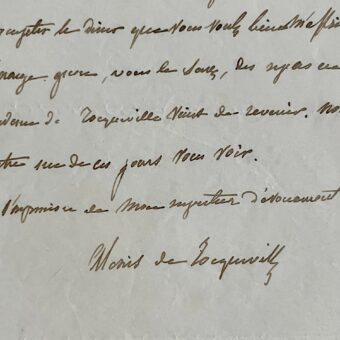 accepter le diner que vous voulez bien m'offrir
mange guere, vous le savez, des repas en
madame de Tocqueville vient de revenir. Nous
un de ces jours vous voir.
l'expression de mon respectueux dévouement
Alexis de Tocqueville